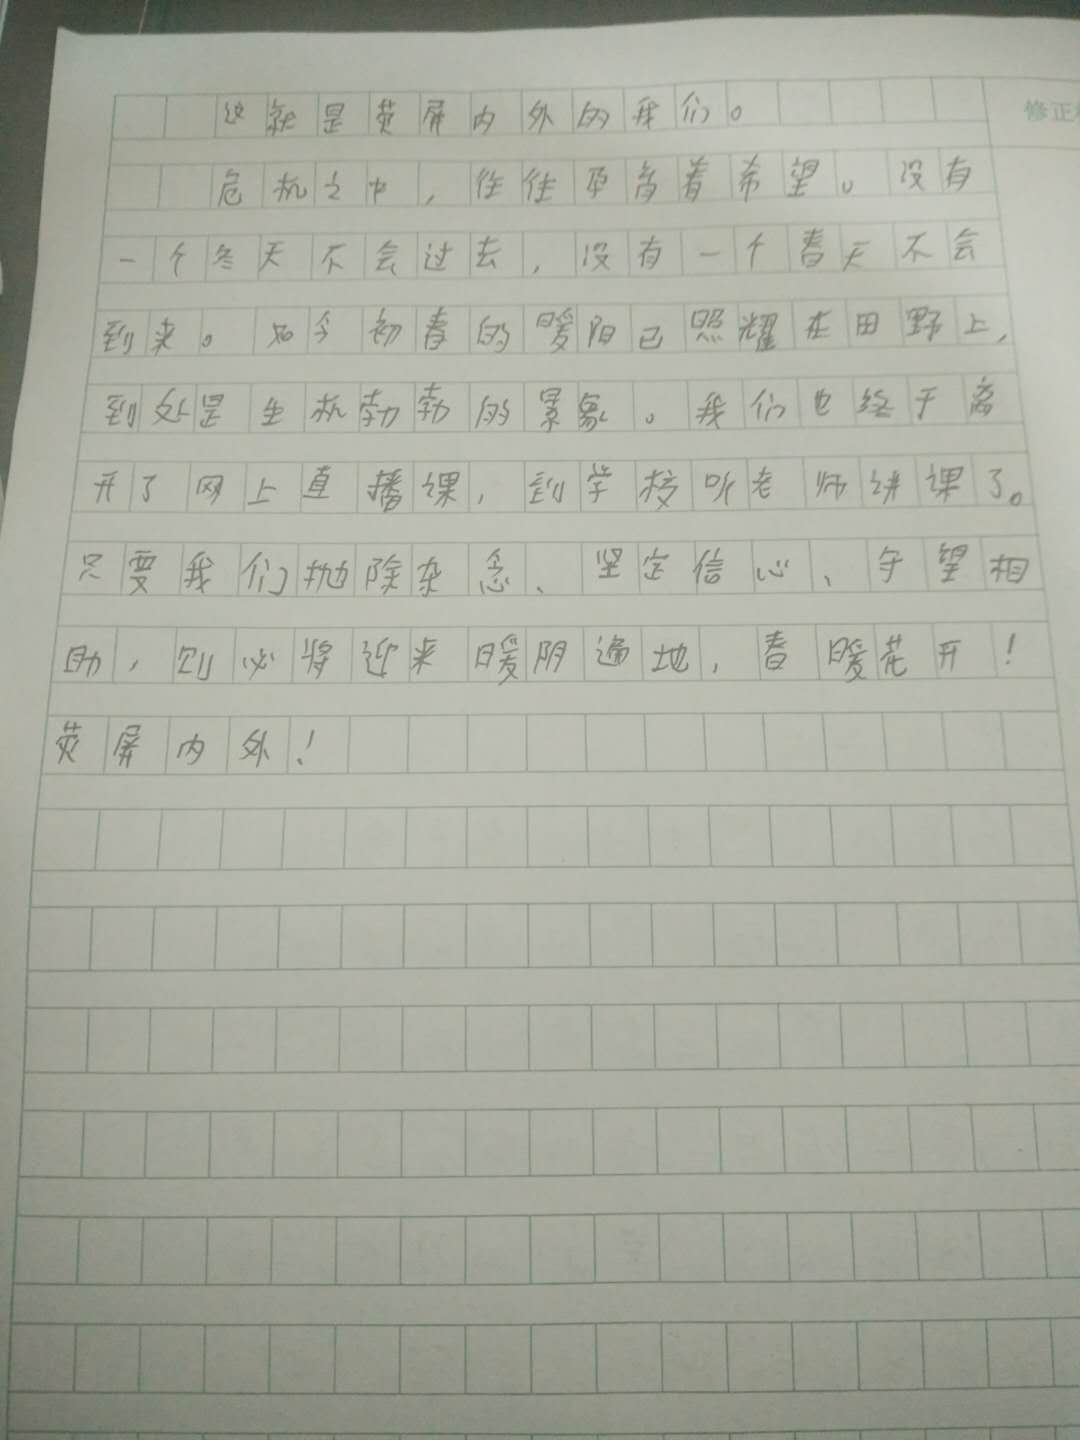 这就是荧屏内外的我们。
修正
危机之中，往往孕育着希望。没有
一个冬天不会过去，没有一个春天不会
到来。如今初春的暖阳已照耀在田野上，
到处是生机勃勃的景象。我们也终于离
开了网上直播课，到学校听老师讲课了。
只要我们抛除杂念、坚定信心、守望相
助，则必将迎来暖阴遍地，春暖花开！
荧屏内外！